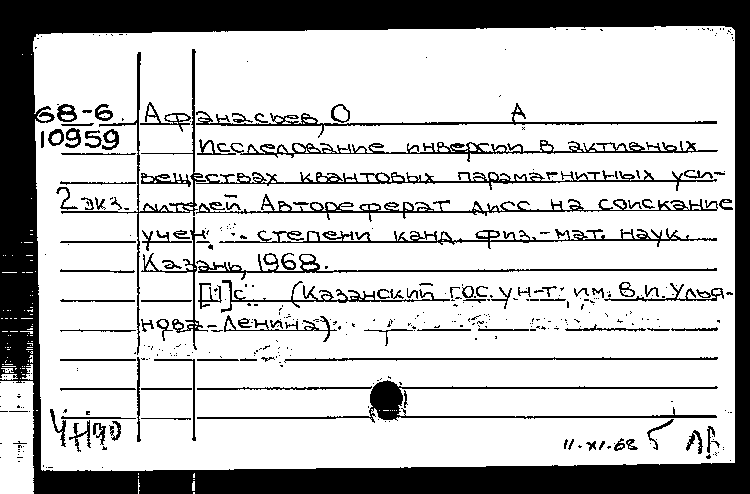 68-6 Афанасьев, О А
10959 Исследование инверсии в активных
веществах квантовых парамагнитных уси-
2 экз. лителей. Автореферат дисс. на соискание
учен. степени канд. физ.-мат. наук.
Казань, 1968.
[11] с. (Казанский гос. ун-т им. В.И. Улья-
нова-Ленина).
11-XI-68